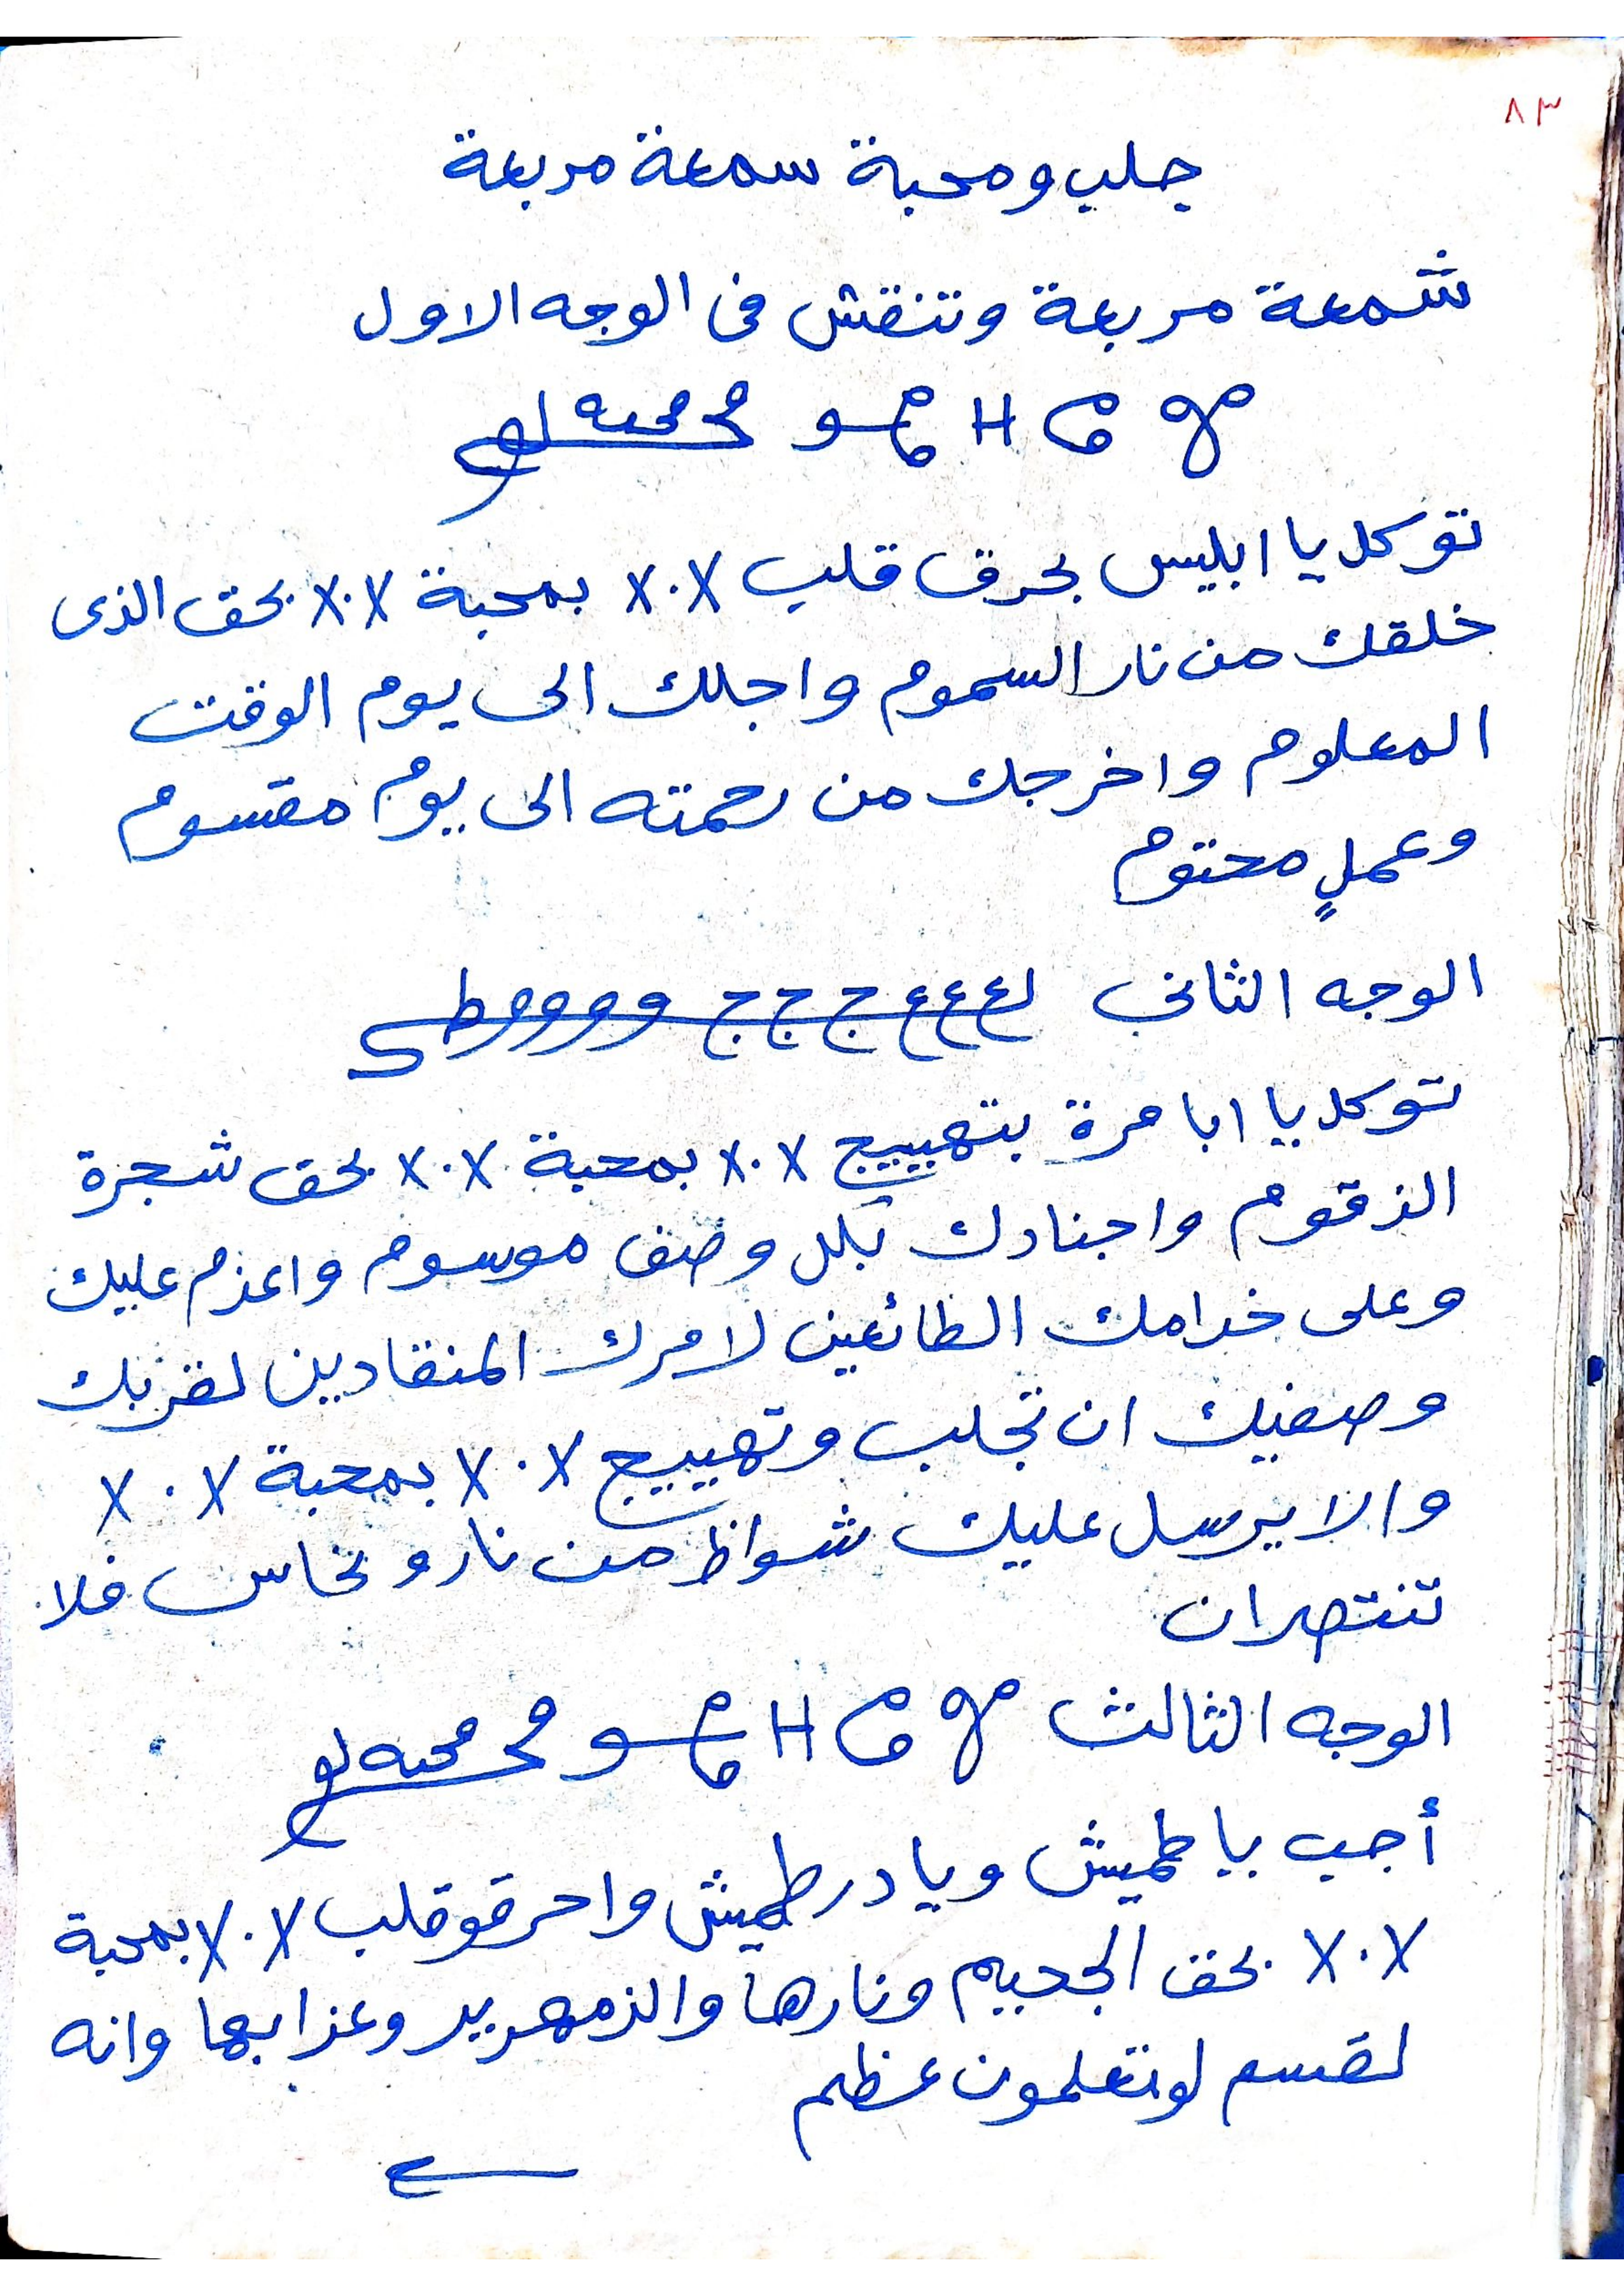 ٨٣
جلب ومحبة سمعة مربعة
شمعة مربعة وتنقش فى الوجه الاول
H
توكل يا ابليس بحرق قلب X.X بمحبة X.X بحق الذى
خلقك من نار السموم واجلك الى يوم الوقت
المعلوم واخرجك من رحمته الى يوم مقسوم
وعملٍ محتوم
الوجه الثانى لع ع ع ع ج ج ج و و و و ط
توكل يا ابا مرة بتهييج X.X بمحبة X.X بحق شجرة
الزقوم واجنادك بكل وصف موسوم واعزم عليك
وعلى خدامك الطائعين لامرك المنقادين لقربك
وصفيك ان تجلب وتهييج X.X بمحبة X.X
والا يرسل عليك شواظ من نار ونحاس فلا
تنتصران
الوجه الثالث H
أجب يا طميش ويا درطميش واحرقو قلب X.X بمحبة
X.X بحق الجحيم ونارها والزمهرير وعذابها وانه
لقسم لو تعلمون عظيم